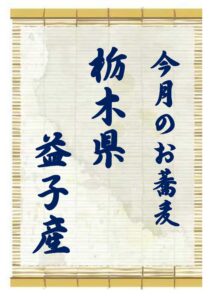 今月のお蕎麦
栃木県
益子産